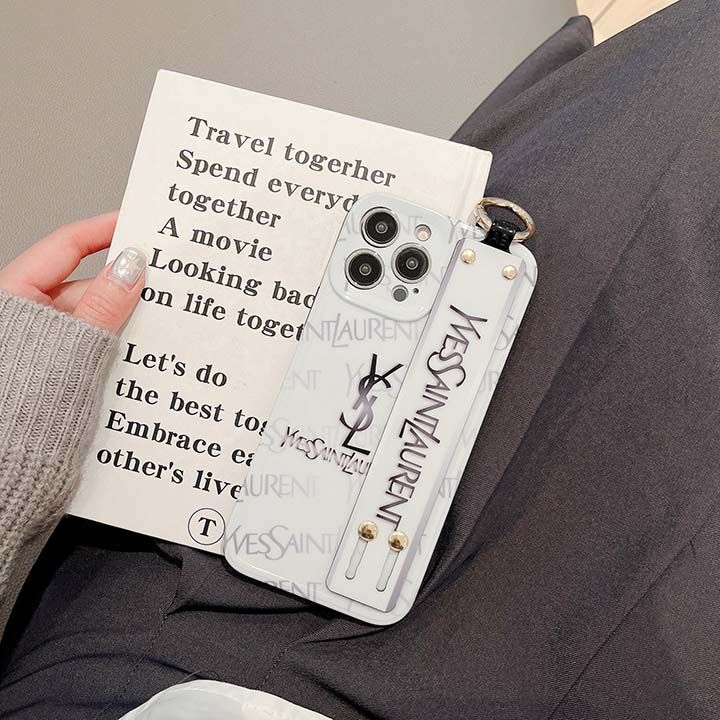 Travel togerher
Spend everyd
together
A movie
Looking bac
on life toget
Let's do
the best tog
Embrace ea
other's live
T
SAINTLAURENT
YVESSAINTLAURENT
YSL
YVESSAINTLAU
AURENT
YVESSAINT
RENT